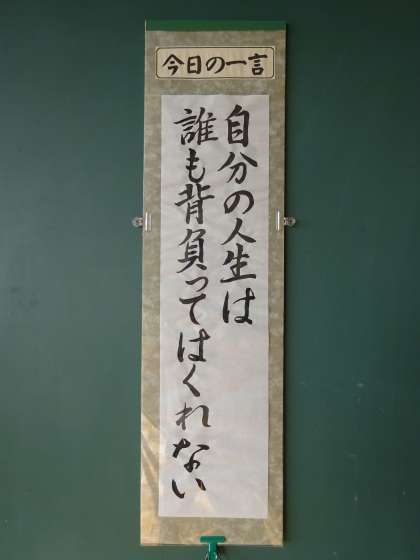 今日の一言
自分の人生は
誰も背負ってはくれない